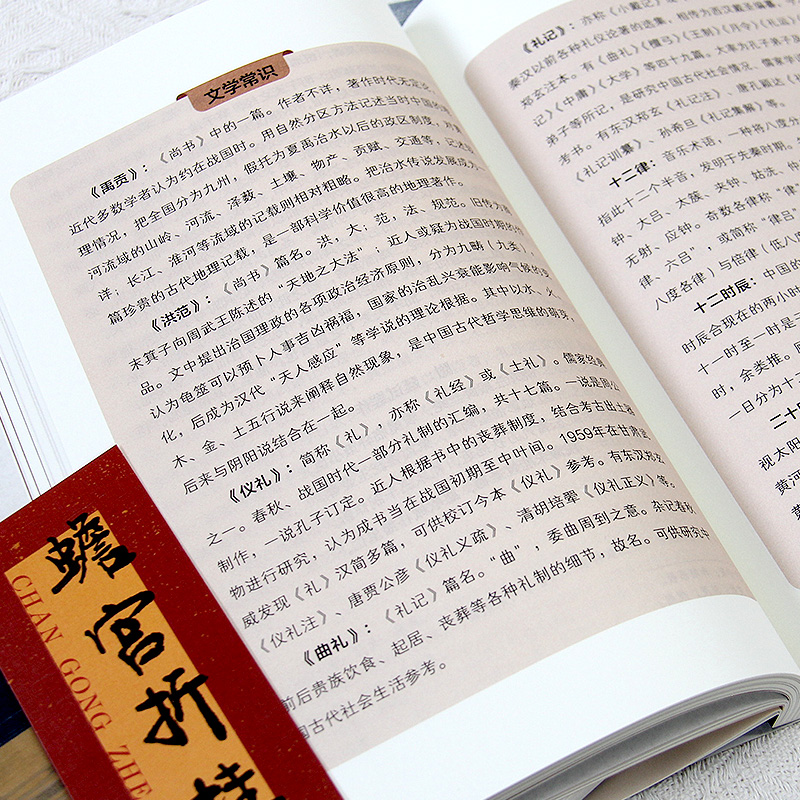 文学常识
《禹贡》：《尚书》中的一篇。作者不详，著作时代无定论，
近代多数学者认为约在战国时。用自然分区方法记述当时中国的
理情况，把全国分为九州，假托为夏禹治水以后的政区制度，
河流域的山岭、河流、泽薮、土壤、物产、贡赋、交通等，记述
详；长江、淮河等流域的记载则相对粗略。把治水传说发展成为
篇珍贵的古代地理记载，是一部科学价值很高的地理著作。
《洪范》：《尚书》篇名。洪，大；范，法、规范。旧传为
末箕子向周武王陈述的“天地之大法”；近人或疑为战国时期的
品。文中提出治国理政的各项政治经济原则，分为九畴（九类），
认为龟筮可以预卜人事吉凶祸福，国家的治乱兴衰能影响气候的变
化，后成为汉代“天人感应”等学说的理论根据。其中以水、火、
木、金、土五行说来阐释自然现象，是中国古代哲学思维的萌芽，
后来与阴阳说结合在一起。
《仪礼》：简称《礼》，亦称《礼经》或《士礼》。儒家经典
之一。春秋、战国时代一部分礼制的汇编，共十七篇。一说是周公
制作，一说孔子订定。近人根据书中的丧葬制度，结合考古出土器
物进行研究，认为成书当在战国初期至中叶间。1959年在甘肃武
威发现《礼》汉简多篇，可供校订今本《仪礼》参考。有东汉郑玄
《仪礼注》、唐贾公彦《仪礼义疏》、清胡培翚《仪礼正义》等。
《曲礼》：《礼记》篇名。“曲”，委曲周到之意。杂记春秋
前后贵族饮食、起居、丧葬等各种礼制的细节，故名。可供研究中
国古代社会生活参考。
《礼记》：亦称《小戴记》
秦汉以前各种礼仪论著的选集，相传为西汉戴圣编纂
郑玄注本。有《曲礼》《檀弓》《王制》《月令》《礼运》
记》《中庸》《大学》等四十九篇，大率为孔子弟子及
弟子等所记，是研究中国古代社会情况、儒家学
考书。有东汉郑玄《礼记注》、唐孔颖达《礼
《礼记训纂》、孙希旦《礼记集解》等。
十二律：音乐术语，一种将八度分
指此十二个半音，发明于先秦时期。
钟、大吕、太簇、夹钟、姑洗、仲
无射、应钟。奇数各律称“律
律、六吕”，或简称“律吕
八度各律）与倍律（低八
十二时辰：中国的
时辰合现在的两小时
十一时至一时是子
时，余类推。
一日分为十
二十
视太阳
黄河
蟾宫折桂
CHAN GONG ZHE